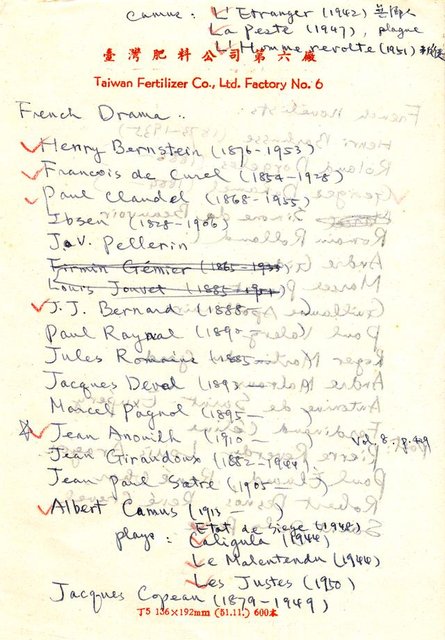 Camus : L'Etranger (1942) 異鄉人
La Peste (1947), plague
L'Homme revolte (1951)
臺灣肥料公司第六廠
Taiwan Fertilizer Co., Ltd. Factory No. 6
French Drama :
Henry Bernstein (1876-1953)
Francois de Curel (1854-1928)
Paul Claudel (1868-1955)
Ibsen (1828-1906)
J.V. Pellerin
Firmin Gémier (1865-1933)
Louis Jouvet (1885-1951)
J.J. Bernard (1888-
Paul Raynal (1890-
Jules Romains (1885-
Jacques Deval (1893-
Marcel Pagnol (1895-
Jean Anouilh (1910 - Vol. 8. p. 429
Jean Giraudoux (1882-1944)
Jean Paul Satre (1905- )
Albert Camus (1913- )
plays : Etat de Siege (1948)
Caligula (1944)
Le Malentendu (1944)
Les Justes (1950)
Jacques Copeau (1879-1949)
T5 136×192mm (51.11.) 600本